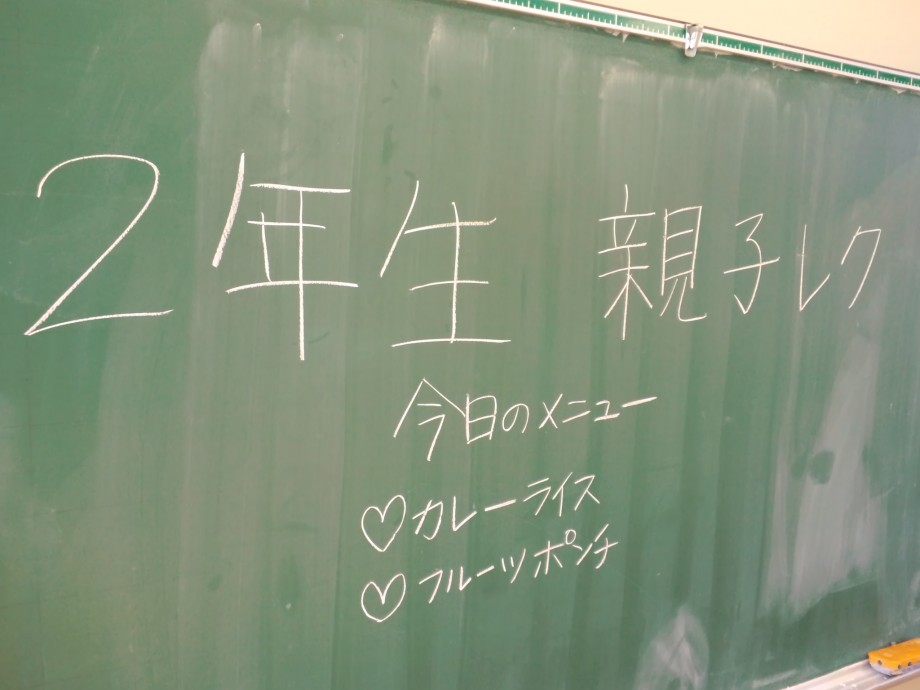 2年生 親子レク
今日のメニュー
♡カレーライス
♡フルーツポンチ